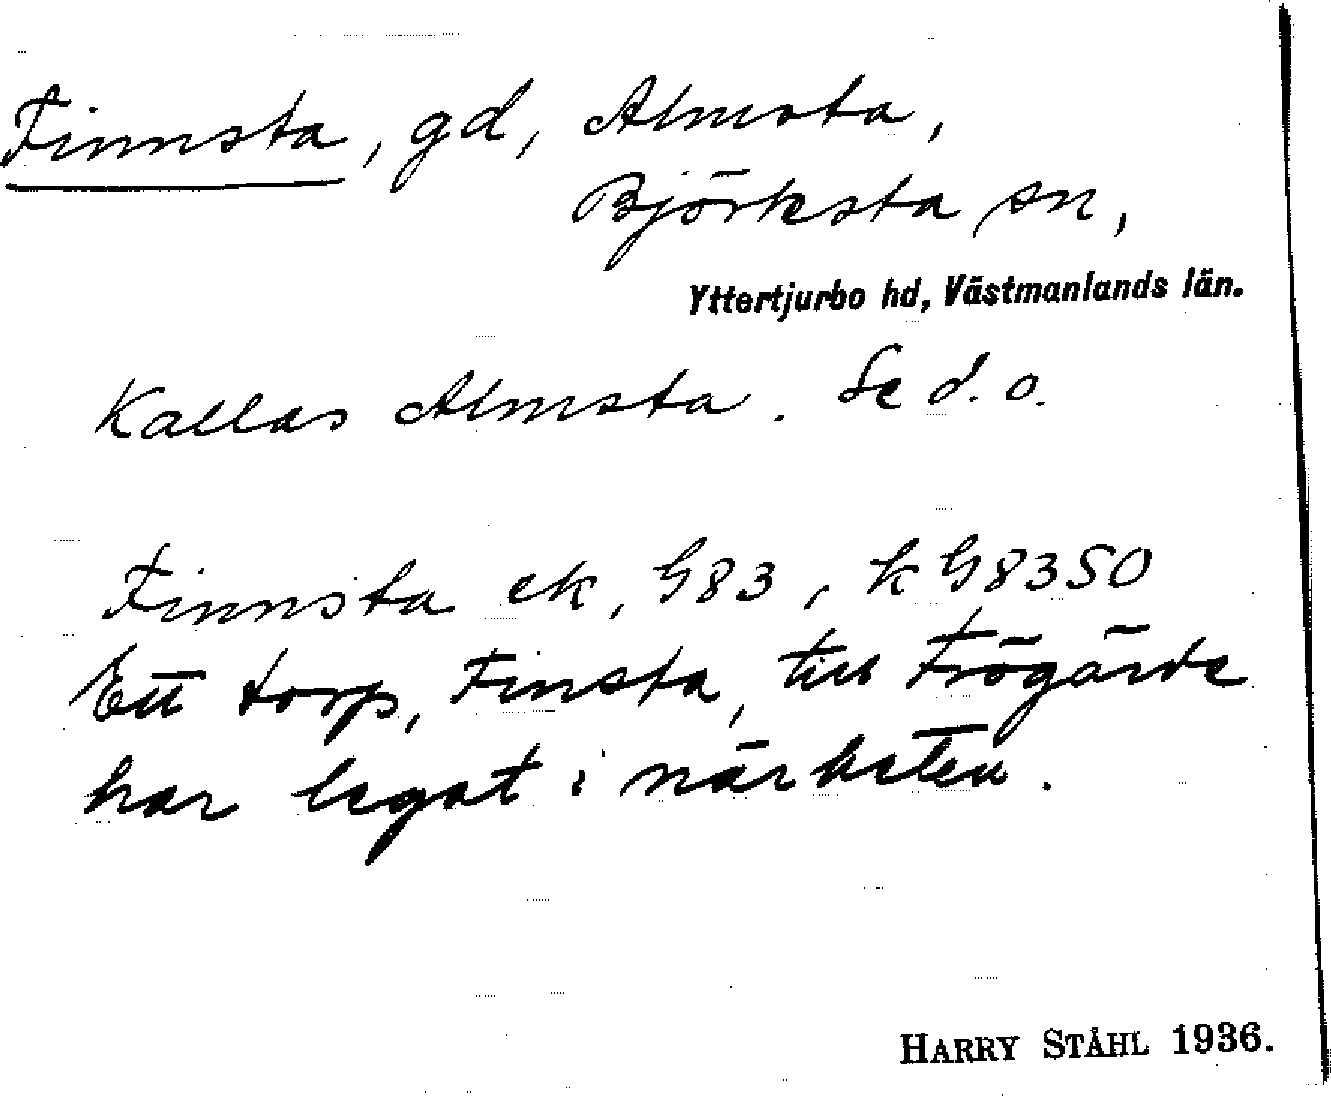 Finnsta, gd, Almsta,
Björksta sn,
Yttertjurbo hd, Västmanlands län.
Kallas Almsta. Se d. o.
Finnsta ek, G83, k G83SO
Ett torp, Finsta, till Frögärde
har legat i närheten.
HARRY STÅHL 1936.